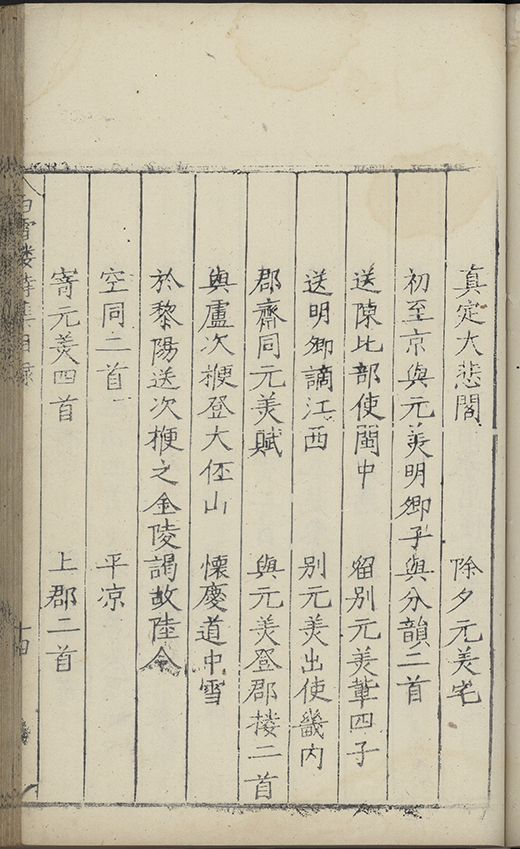 真定大悲閣　除夕元美宅
初至京與元美明卿子與分韻二首
送陳比部使閩中　留別元美軰四子
送明卿謫江西　別元美出使畿内
郡齋同元美賦　與元美登郡樓二首
與盧次楩登大伾山　懷慶道中雪
於黎陽送次楩之金陵謁故陸令
空同二首　平凉
寄元美四首　上郡二首
白雪樓詩集目錄　十四